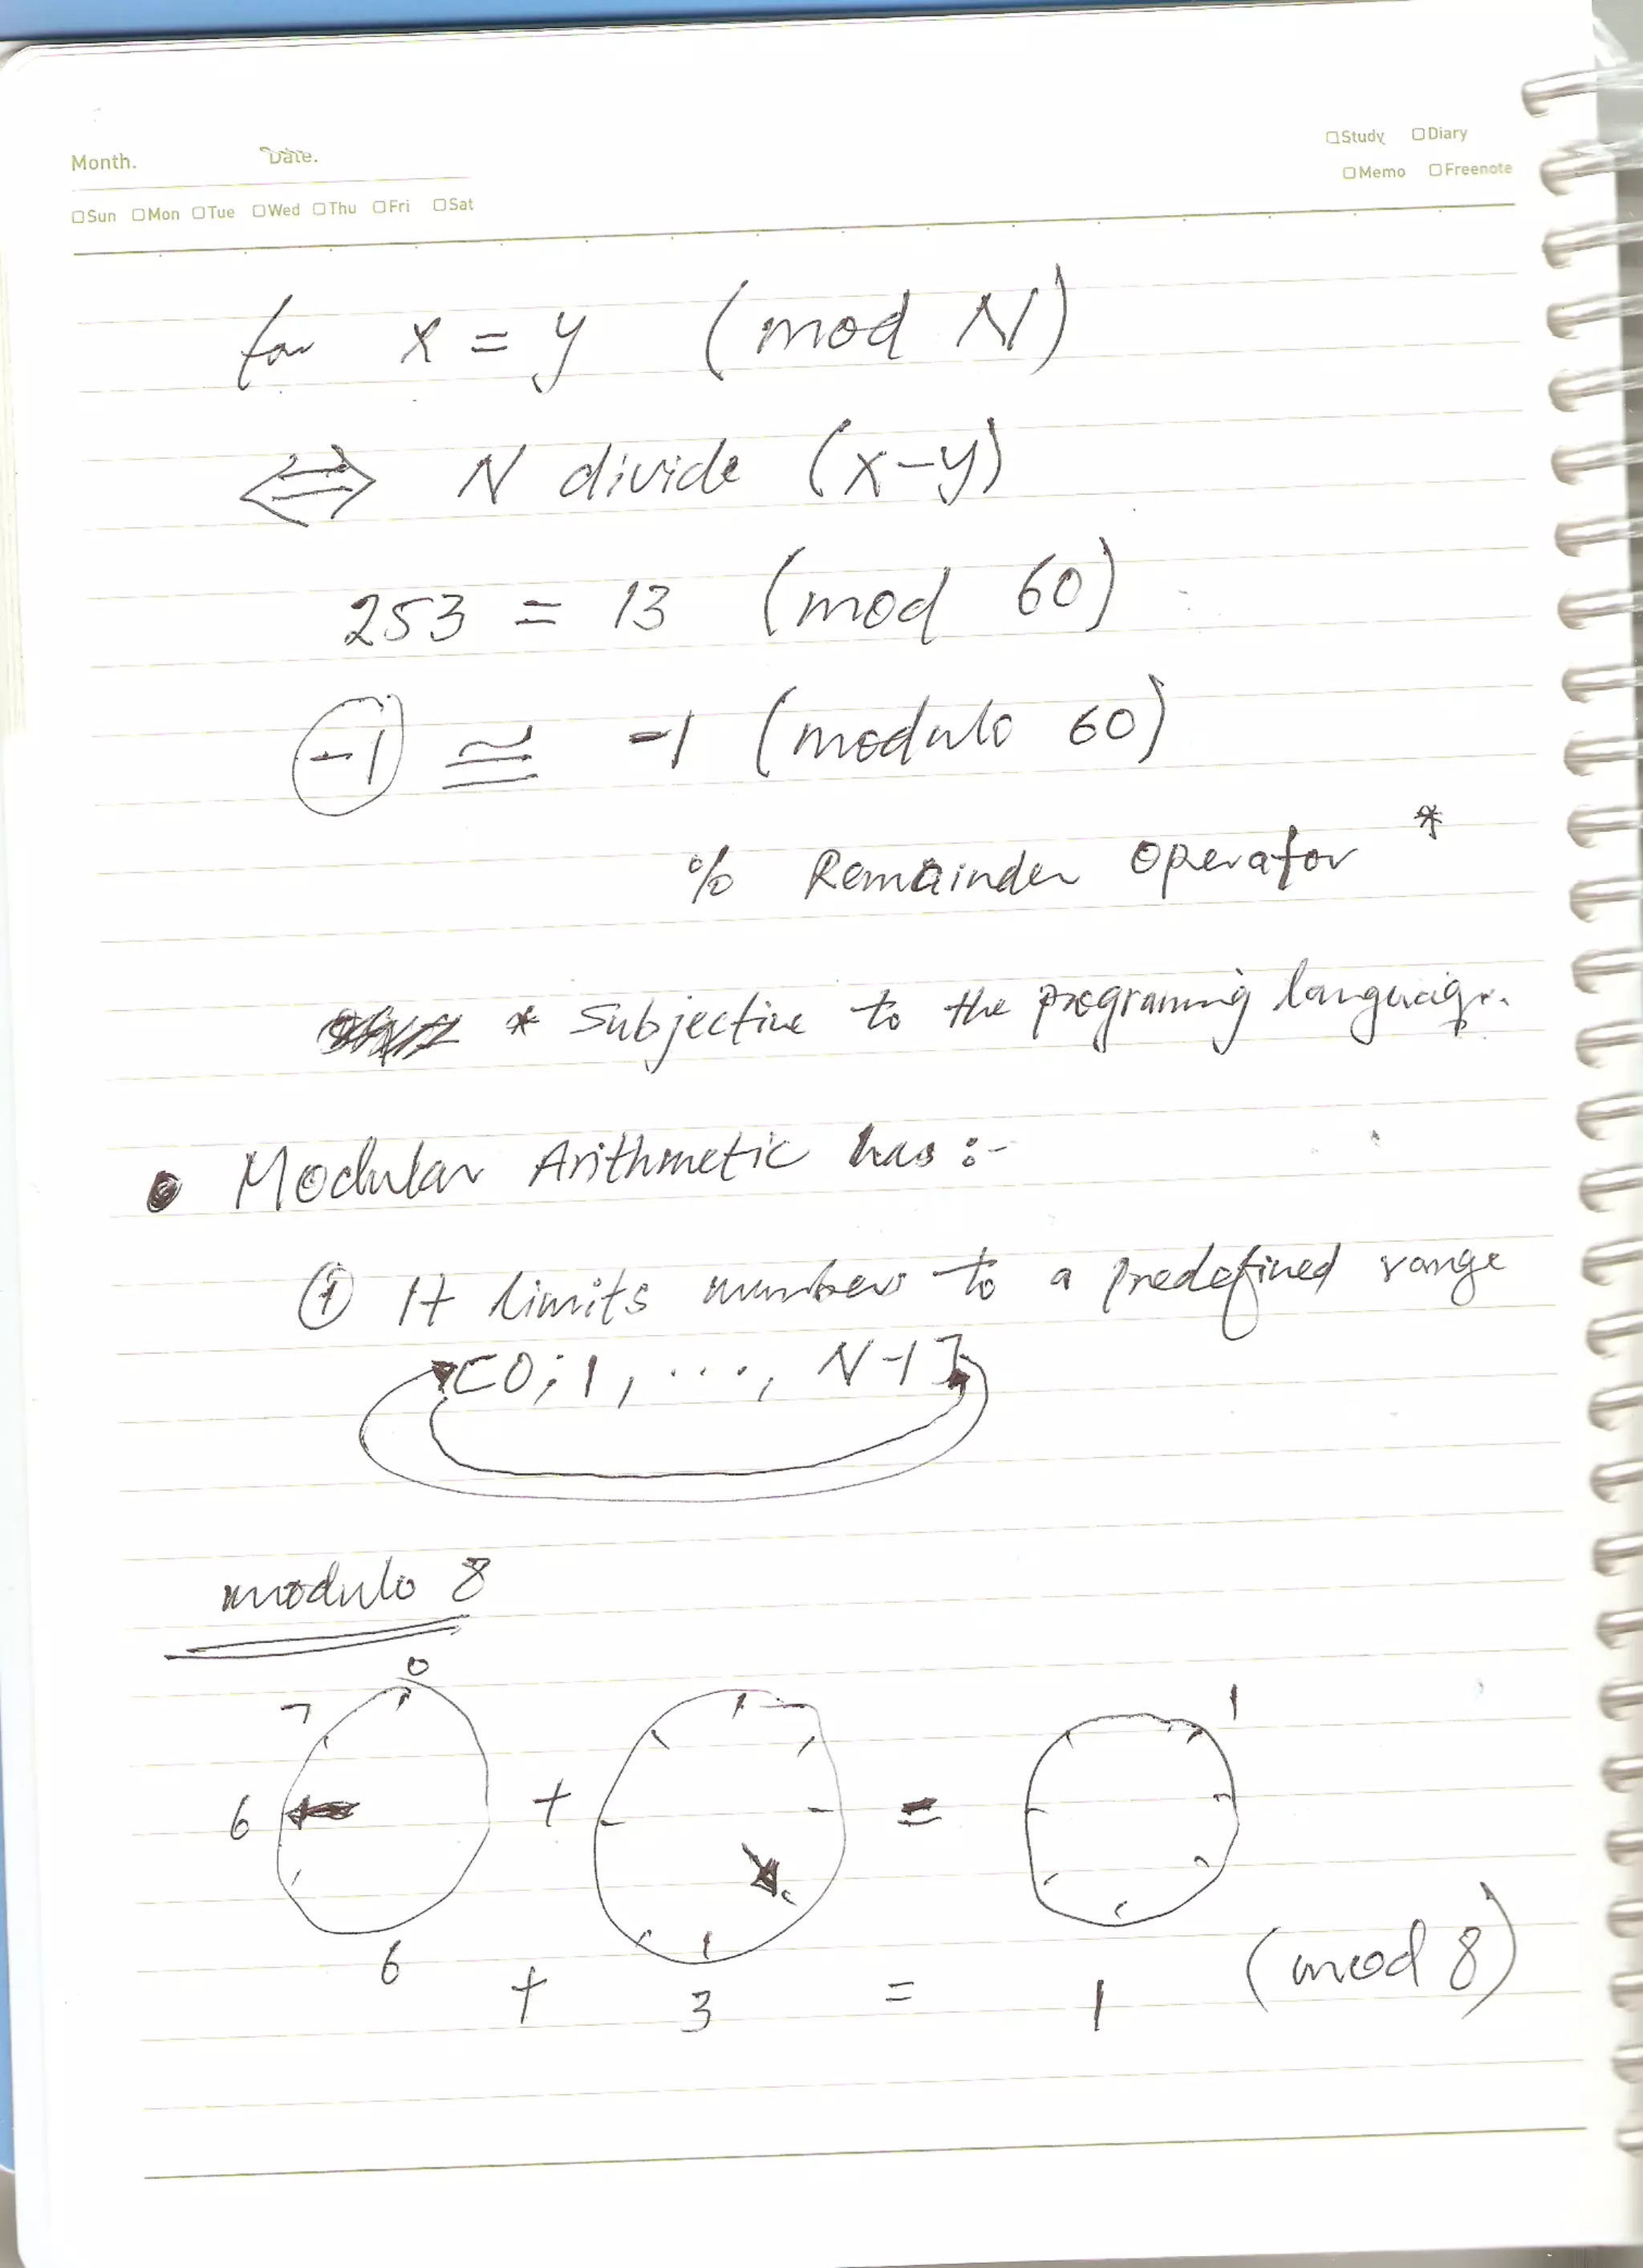 Month. Date.
□Study □Diary
□Memo □Freenote
□Sun □Mon □Tue □Wed □Thu □Fri □Sat
for x = y (mod N)
⇔ N divide (x-y)
253 = 13 (mod 60)
-1 ≅ -1 (modulo 60)
% Remainder Operator *
* Subjective to the programing language.
• Modular Arithmetic has :-
① It limits numbers to a predefined range
[0; 1, ..., N-1]
modulo 8
0
7 1
6 + =
6 + 3 = 1 (mod 8)